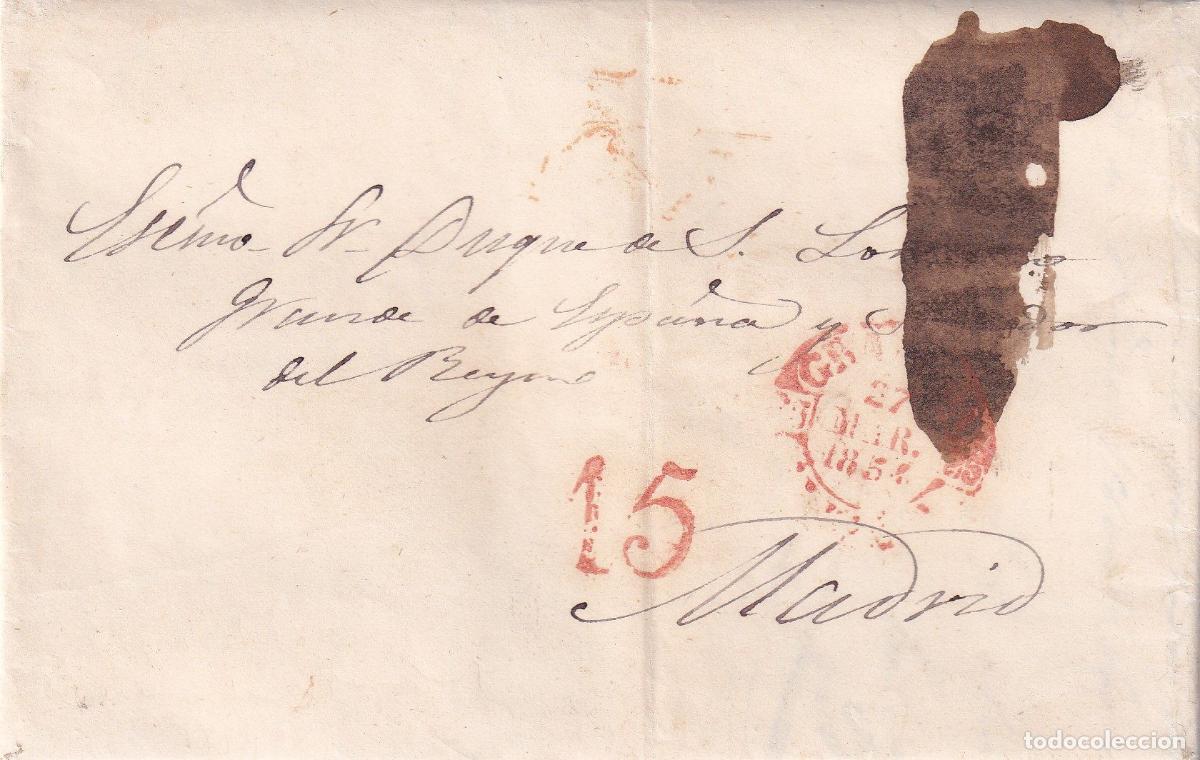 Escmo Sr Duque de S. Lorenzo
Grande de España y Senador
del Reyno
27
MAR.
185
15
Madrid
todocoleccion